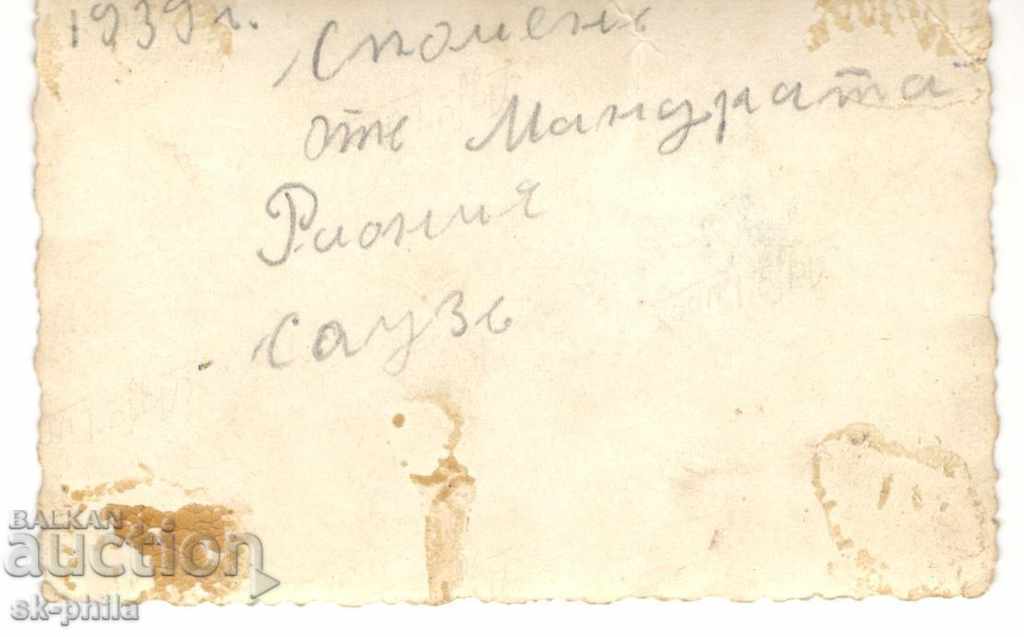 1939 г.
Споменъ
отъ Мандрата
Райония
саузъ
BALKAN
auction
sk-phila